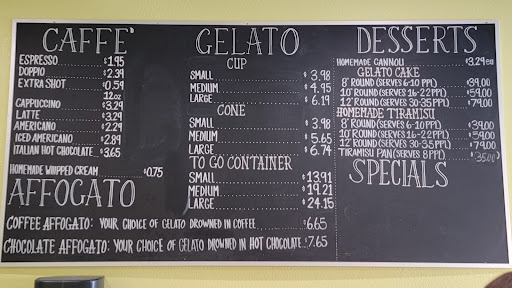 CAFFE'
ESPRESSO $1.95
DOPPIO $2.39
EXTRA SHOT $0.59
12oz
CAPPUCCINO $3.29
LATTE $3.29
AMERICANO $2.29
ICED AMERICANO $2.89
ITALIAN HOT CHOCOLATE $3.65
HOMEMADE WHIPPED CREAM $0.75
AFFOGATO
COFFEE AFFOGATO: YOUR CHOICE OF GELATO DROWNED IN COFFEE $6.65
CHOCOLATE AFFOGATO: YOUR CHOICE OF GELATO DROWNED IN HOT CHOCOLATE $7.65
GELATO
CUP
SMALL $3.98
MEDIUM $4.95
LARGE $6.19
CONE
SMALL $3.98
MEDIUM $5.65
LARGE $6.74
TO GO CONTAINER
SMALL $13.91
MEDIUM $19.21
LARGE $24.15
DESSERTS
HOMEMADE CANNOLI $3.29 EA
GELATO CAKE
8" ROUND (SERVES 6-10 PPL) $39.00
10" ROUND (SERVES 16-22 PPL) $59.00
12" ROUND (SERVES 30-35 PPL) $79.00
HOMEMADE TIRAMISU
8" ROUND (SERVES 6-10 PPL) $39.00
10" ROUND (SERVES 16-22 PPL) $59.00
12" ROUND (SERVES 30-35 PPL) $79.00
TIRAMISU PAN (SERVES 8 PPL) $35.00
SPECIALS